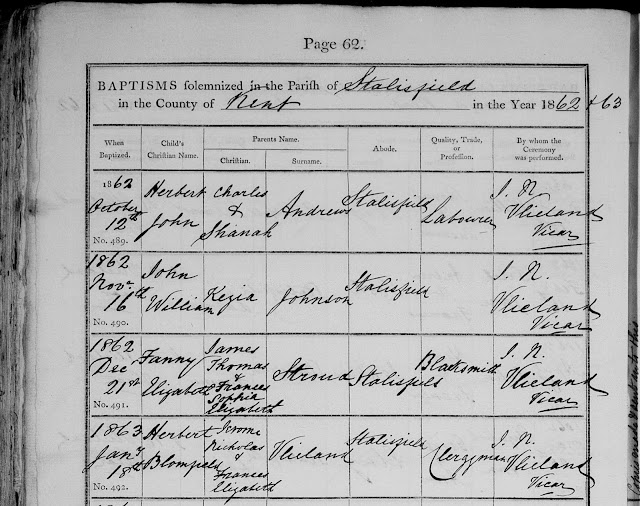 Page 62.
BAPTISMS solemnized in the Parish of Stalisfield
in the County of Kent in the Year 1862 & 63
When Baptized. Child's Christian Name. Parents Name. Christian. Surname. Abode. Quality, Trade, or Profession. By whom the Ceremony was performed.
1862 October 12th No. 489. Herbert John Charles & Shanah Andrews Stalisfield Labourer J. N. Vlieland Vicar
1862 Novr. 16th No. 490. John William Kezia Johnson Stalisfield J. N. Vlieland Vicar
1862 Dec 21st No. 491. Fanny Elizabeth James Thomas & Frances Sophia Elizabeth Stroud Stalisfield Blacksmith J. N. Vlieland Vicar
1863 Jany 18th No. 492. Herbert Blomfield Jerome Nicholas & Frances Elizabeth Vlieland Stalisfield Clergyman J. N. Vlieland Vicar